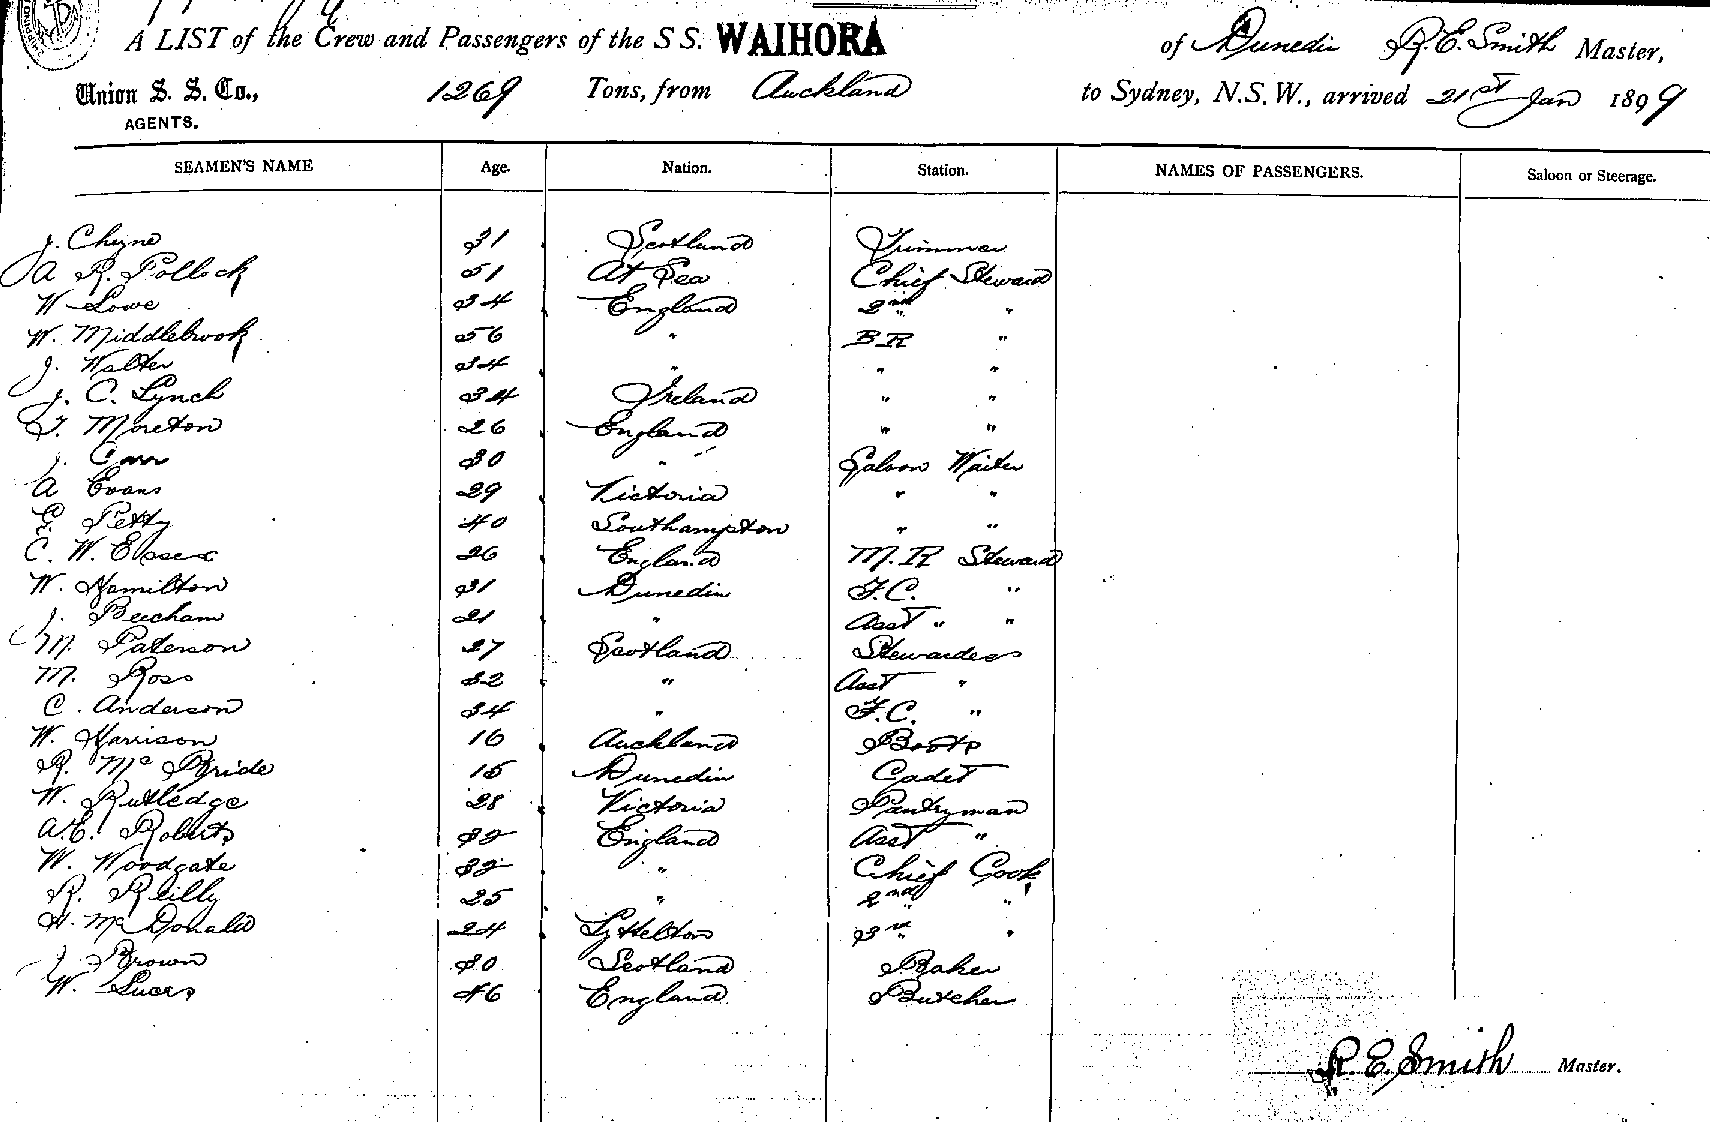 A LIST of the Crew and Passengers of the S S. WAIHORA of Dunedin R. E. Smith Master,
Union S. S. Co., 1269 Tons, from Auckland to Sydney, N.S.W., arrived 21st Jan 1899
AGENTS.
SEAMEN'S NAME Age. Nation. Station. NAMES OF PASSENGERS. Saloon or Steerage.
J. Chyne 31 Scotland Trimmer
A R. Pollock 51 At Sea Chief Steward
W Lowe 34 England 2nd "
W. Middlebrook 56 " B R "
J. Walter 34 " " "
J. C. Lynch 34 Ireland " "
T. Moreton 26 England " "
J. Carr 30 " Saloon Waiter
A Evans 29 Victoria " "
G. Petty 40 Southampton " "
C. W. Essex 26 England M. R Steward
W. Hamilton 31 Dunedin F.C. "
J. Beecham 21 " Asst " "
M. Paterson 27 Scotland Stewardess
M. Ross 32 " Asst "
C. Anderson 34 " F.C. "
W. Harrison 16 Auckland Boots
R. Mc Bride 15 Dunedin Cadet
W. Rutledge 28 Victoria Pantryman
A.E. Roberts 32 England Asst "
W. Woodgate 32 " Chief Cook
R. Reilly 25 " 2nd "
H. Mc Donald 24 Lyttelton 3rd "
J. Brown 30 Scotland Baker
W. 46 England Butcher
R. E. Smith Master.